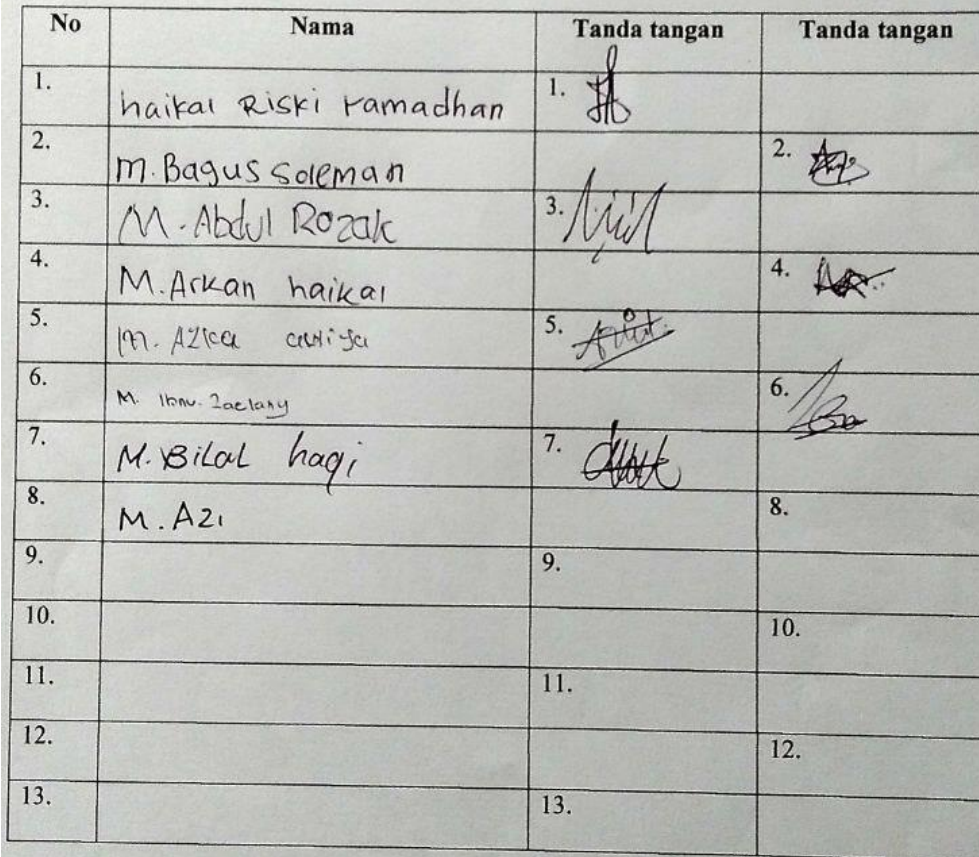 No Nama Tanda tangan Tanda tangan
1. haikal Riski ramadhan 1.
2. M. Bagus Soleman 2.
3. M. Abdul Rozak 3.
4. M. Arkan haikal 4.
5. M. Azka 5.
6. M. Ibnu. Zaelany 6.
7. M. Bilal haqi 7.
8. M. Azi 8.
9. 9.
10. 10.
11. 11.
12. 12.
13. 13.